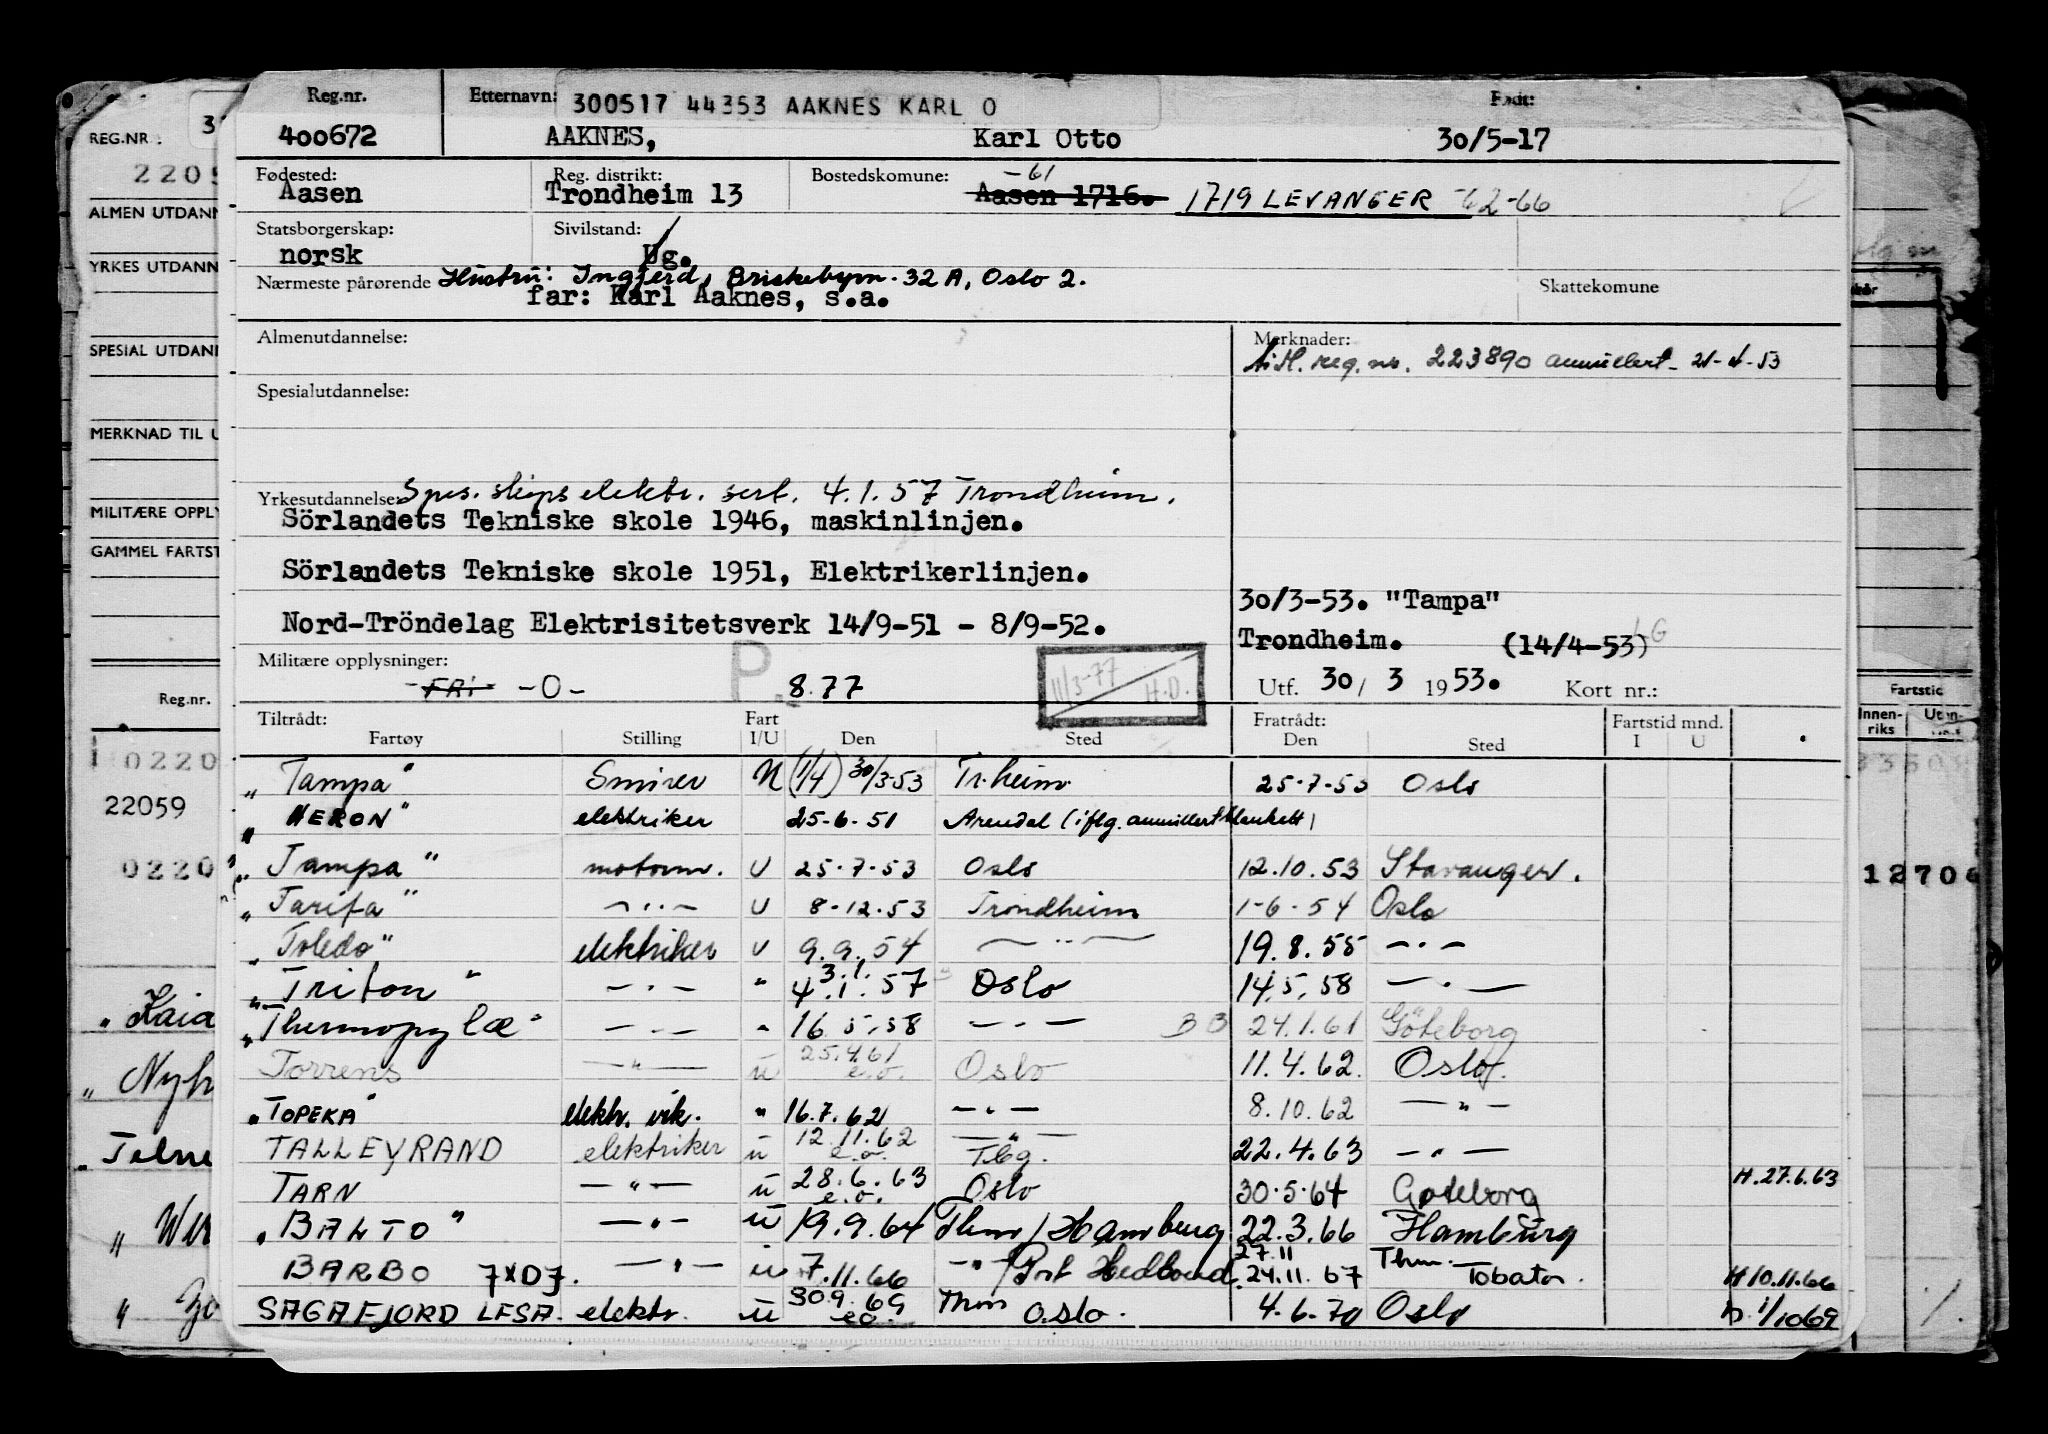 Reg.nr. Etternavn: 300517 44353 AAKNES KARL O Født:
400672 AAKNES, Karl Otto 30/5-17
Fødested: Reg. distrikt: Bostedskomune: -61
Aasen Trondheim 13 Aasen 1716. 1719 LEVANGER -62-66
Statsborgerskap: Sivilstand:
norsk Ug.
Nærmeste pårørende Hustru: Ingjerd, Briskebyvn. 32 A, Oslo 2. Skattekomune
far: Karl Aaknes, s.a.
Almenutdannelse: Merknader:
reg. nr. 223890 annullert - 21-4-53
Spesialutdannelse:
Yrkesutdannelse: Spes. skips elektr. sert. 4.1.57 Trondheim.
Sörlandets Tekniske skole 1946, maskinlinjen.
Sörlandets Tekniske skole 1951, Elektrikerlinjen.
30/3-53. "Tampa"
Nord-Tröndelag Elektrisitetsverk 14/9-51 - 8/9-52.
Trondheim. (14/4-53) LG
Militære opplysninger: P. 11/3-77 H.D.
FRI -0- 8.77 Utf. 30/ 3 1953. Kort nr.:
Tiltrådt: Fart Fratrådt: Fartstid mnd.
Fartøy Stilling I/U Den Sted Den Sted I U
„Tampa" Smører N (1/4) 30/3-53 Tr.heim 25-7-53 Oslo
„HERON" elektriker 25-6-51 Arendal (iflg. annullert blankett)
„Tampa" motorm. U 25-7-53 Oslo 12.10.53 Stavanger.
„Tarifa" -"- U 8-12-53 Trondheim 1-6-54 Oslo
„Toledo" elektriker U 9.9.54 -"- 19.8.55 -"-
„Triton" -"- " 3.1. 4.1.57 Oslo 14.5.58 -"-
„Thermopylæ" -"- " 16.5.58 -"- BB 24.1.61 Göteborg
Torrens -"- u 25.4.61 e.o. Oslo 11.4.62. Oslo.
„TOPEKA" elektr. vik. " 16.7.62 -"- 8.10.62 -"-
TALLEYRAND elektriker u 12.11.62 e.o. -"- Tbg. 22.4.63 -"-
TARN -"- u 28.6.63 e.o. Oslo 30.5.64 Gøteborg H.27.6.63
„BALTO" -"- u 19.9.64 Thm/Hamburg 22.3.66 Hamburg
BARBO 7XDJ. -"- u 7.11.66 -"- 27.11 24.11.67 Thm. Tobata. H 10.11.66
SAGAFJORD LESA. elektr. u 30.9.69 e.o. Thm Oslo. 4.6.70 Oslo D. 1/10 69
REG.NR. 3
2205
ALMEN UTDANN
YRKES UTDANN
SPESIAL UTDANN
MERKNAD TIL U
MILITÆRE OPPLY
GAMMEL FARTST
Reg.nr.
0220
22059
0220
„Kaia
„Nyh
Fartstid
Innen-riks
12706